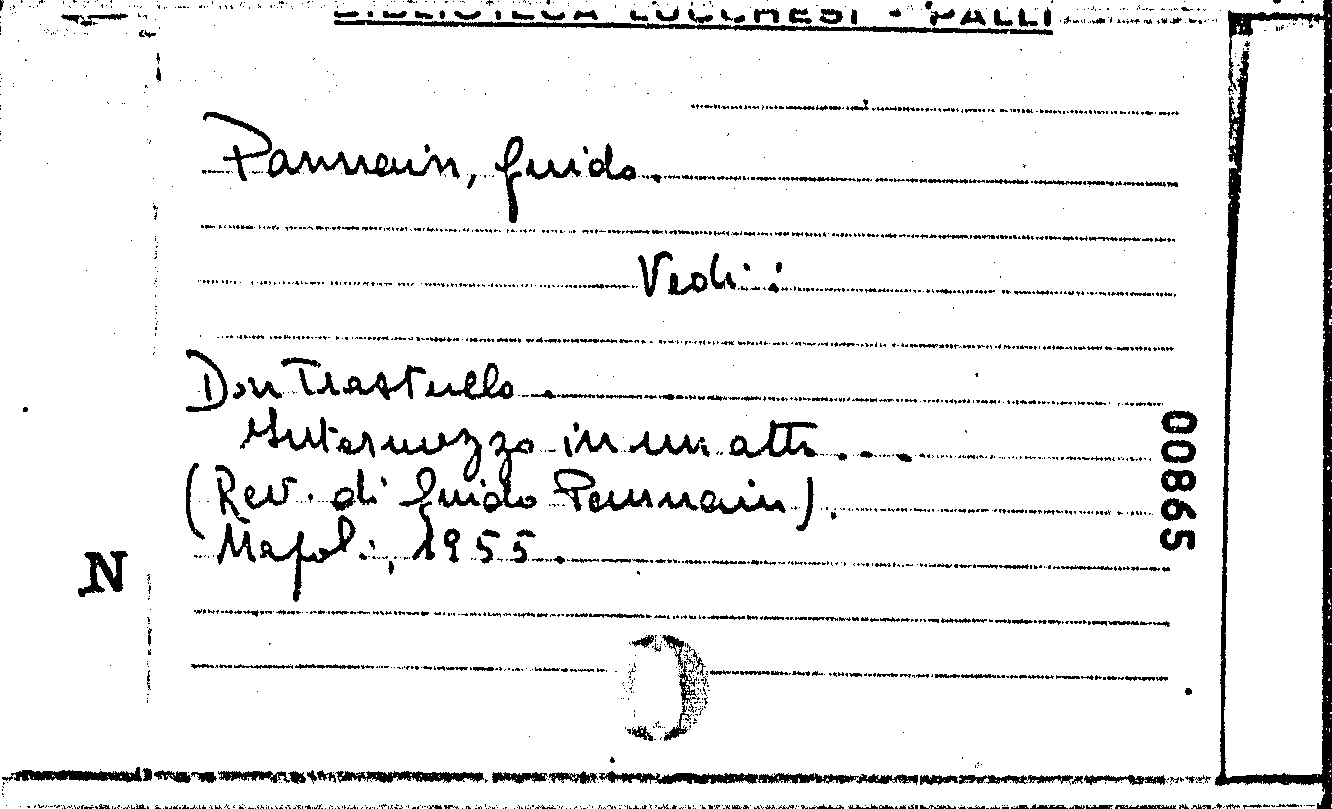 BIBLIOTECA LUCCHESI - PALLI
Pannain, Guido.
Vedi:
Don Trastullo.
Intermezzo in un atto...
(Rev. di Guido Pannain).
Napoli, 1955.
N
00865